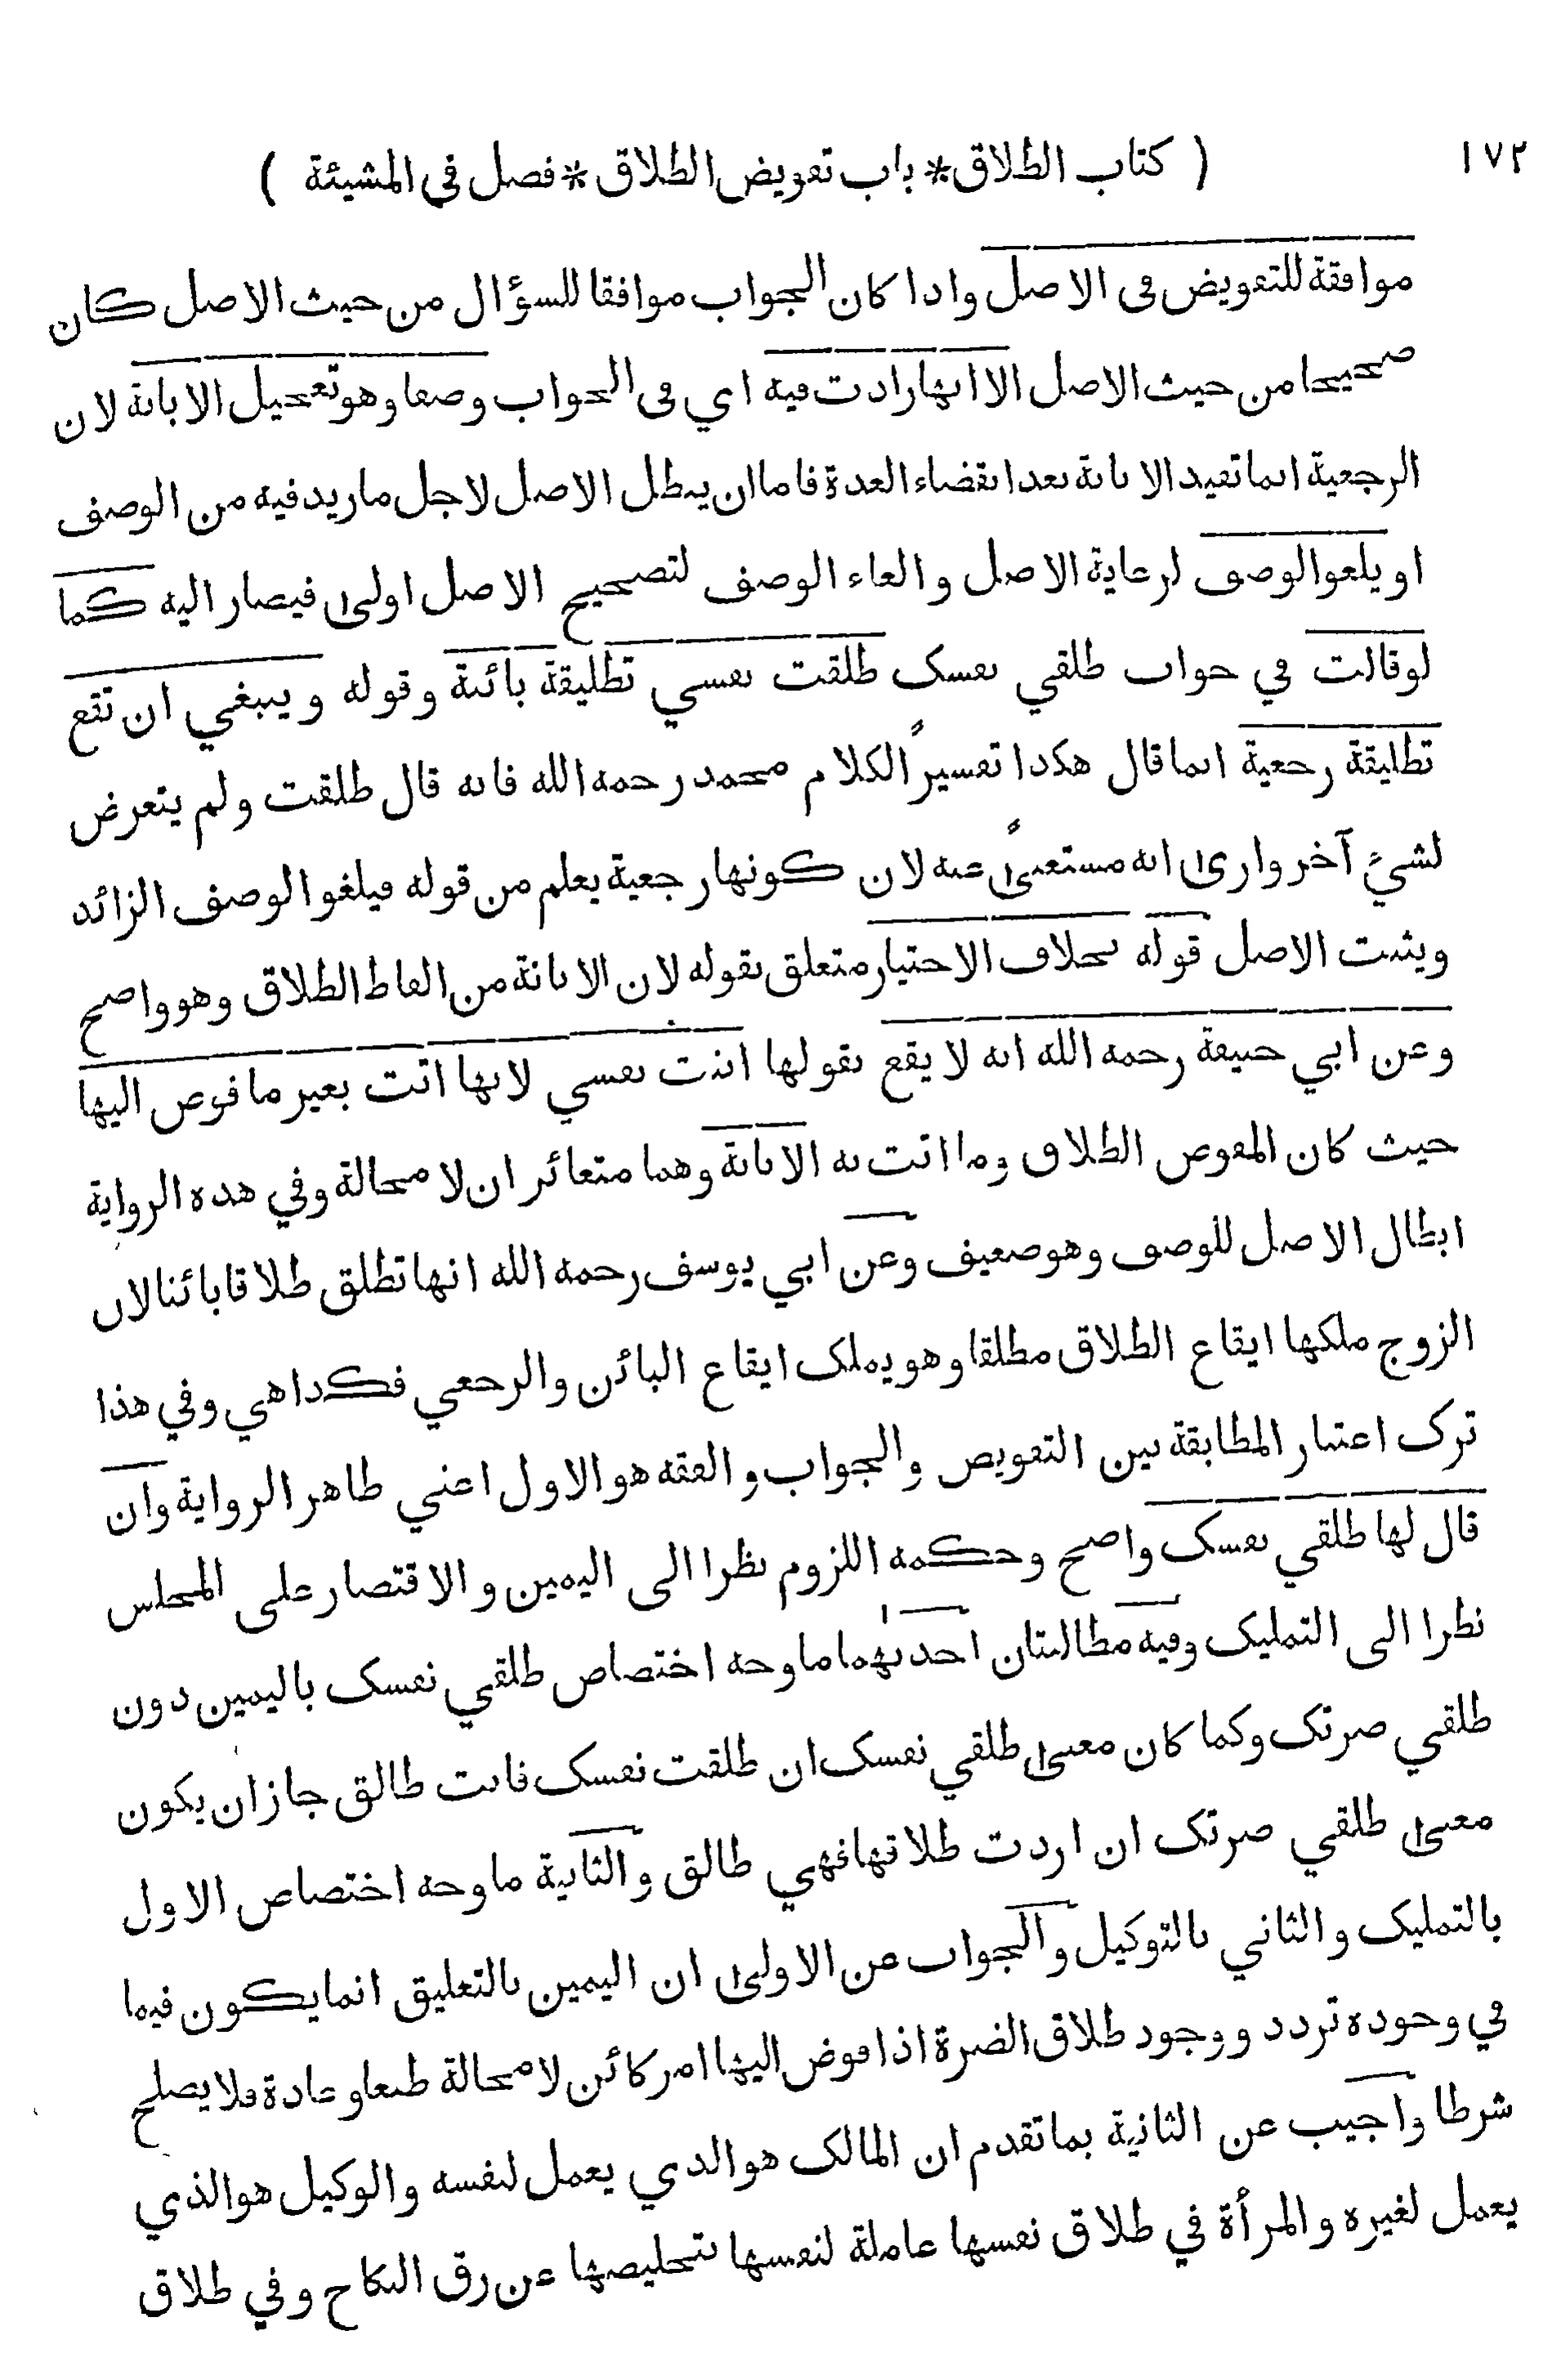 ١٧٢ ( كتاب الطلاق * باب تفويض الطلاق * فصل في المشيئة )
موافقة للتفويض في الاصل واذا كان الجواب موافقا للسؤال من حيث الاصل كان
صحيحا من حيث الاصل الا انها زادت فيه اي في الجواب وصفا وهو تعجيل الابانة لان
الرجعية انما تفيد الابانة بعد انقضاء العدة فاما ان يبطل الاصل لاجل ما زيد فيه من الوصف
او يلغو الوصف لرعاية الاصل و الغاء الوصف لتصحيح الاصل اولى فيصار اليه كما
لو قالت في جواب طلقي نفسک طلقت نفسي تطليقة بائنة و قوله و ينبغي ان تقع
تطليقة رجعية انما قال هكذا تفسيرًا لكلام محمد رحمه الله فانه قال طلقت و لم يتعرض
لشئ آخر وارى انه مستغنىً عنه لان كونها رجعية يعلم من قوله فيلغو الوصف الزائد
ويثبت الاصل قوله بخلاف الاختيار متعلق بقوله لان الابانة من الفاظ الطلاق و هو واضح
وعن ابي حنيفة رحمه الله انه لا يقع بقولها ابنت نفسي لانها اتت بغير ما فوض اليها
حيث كان المفوض الطلاق وما اتت به الابانة وهما متغائران لا محالة وفي هذه الرواية
ابطال الاصل للوصف وهو ضعيف وعن ابي يوسف رحمه الله انها تطلق طلاقا بائنا لان
الزوج ملكها ايقاع الطلاق مطلقا وهو يملک ايقاع البائن والرجعي فكذا هي وفي هذا
ترک اعتبار المطابقة بين التفويض والجواب و الفقه هو الاول اعني ظاهر الرواية وان
قال لها طلقي نفسک واضح وحكمه اللزوم نظرا الى اليمين و الاقتصار على المجلس
نظرا الى التمليک وفيه مطالبتان احدىهما ما وجه اختصاص طلقي نفسک باليمين دون
طلقي ضرتک وكما كان معنى طلقي نفسک ان طلقت نفسک فانت طالق جاز ان يكون
معنى طلقي ضرتک ان اردت طلاقها فهي طالق والثانية ما وجه اختصاص الاول
بالتمليک والثاني بالتوكيل والجواب عن الاولى ان اليمين بالتعليق انما يكون فيما
في وجوده تردد و وجود طلاق الضرة اذا فوض اليها امر كائن لا محالة طبعا و عادة فلا يصلح
شرطا واجيب عن الثانية بما تقدم ان المالک هو الذي يعمل لنفسه والوكيل هو الذي
يعمل لغيره والمرأة في طلاق نفسها عاملة لنفسها بتخليصها عن رق النكاح وفي طلاق